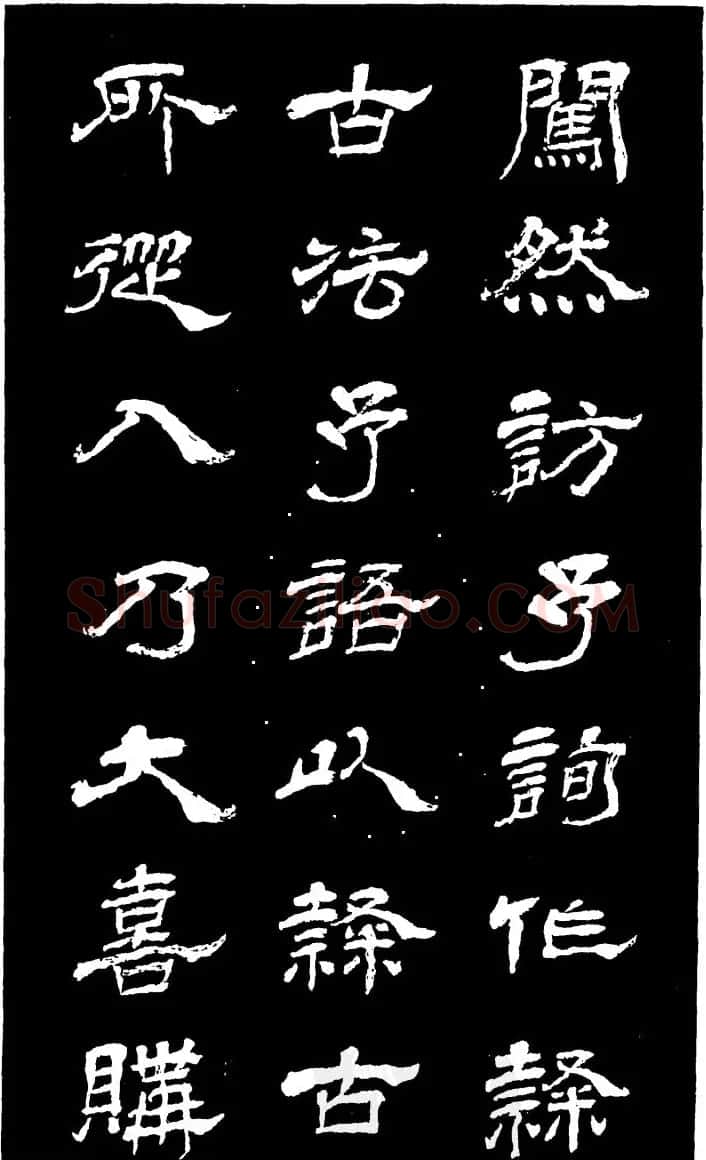 闖然訪予詢作隸
古法予語以隸古
所從入乃大喜購
Shufaziliao.COM